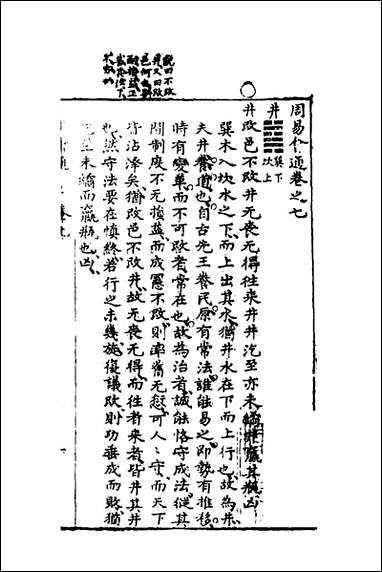 周易會通卷之七
井 ䷯ 巽下
坎上
井改邑不改井无喪无得往來井井汔至亦未繘井羸其瓶凶
巽木入坎水之下而上出其水猶井水在下而上行也故為井
夫井養道也自古先王養民原有常法誰能易之即勢有推移
時有變革而不可改者常在也故為治者誠能恪守成法從其
間制度不无損益而成憲不改則率舊无愆可人人守而天下
皆沾澤矣猶改邑不改井故无喪无得而往者來者皆井其井
也然守法要在慎終若行之未幾旋復議改則功垂成而敗猶
汔至未繘而羸瓶也凶
曰不改
井又曰改
邑何也